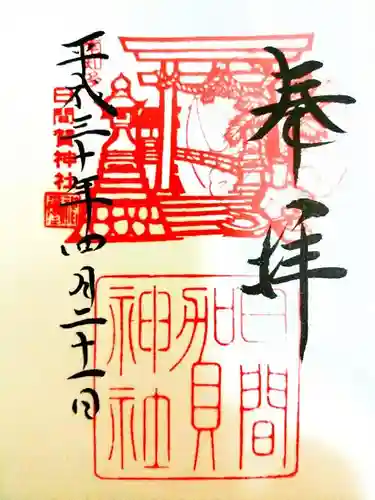 奉拝
日間賀神社
平成三十年四月二十一日
日間賀神社